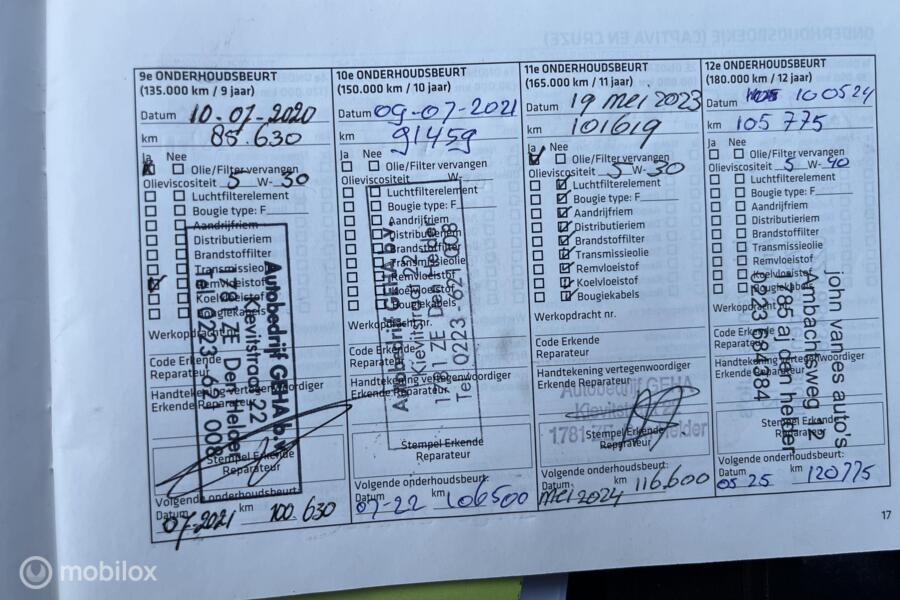 9e ONDERHOUDSBEURT
(135.000 km / 9 jaar)
Datum 10-07-2020
km 85.630
Ja Nee
Olie/Filter vervangen
Olieviscositeit 5 W-30
Luchtfilterelement
Bougie type: F
Aandrijfriem
Distributieriem
Brandstoffilter
Transmissieolie
Remvloeistof
Koelvloeistof
Bougiekabels
Werkopdracht nr.
Code Erkende
Reparateur
Handtekening vertegenwoordiger
Erkende Reparateur
Autobedrijf GEHA b.v.
Kievitstraat 22
1781 ZE Den Helder
Tel. 0223-62 1008
Stempel Erkende
Reparateur
Volgende onderhoudsbeurt:
Datum 07-2021 km 100.630
10e ONDERHOUDSBEURT
(150.000 km / 10 jaar)
Datum 09-07-2021
km 91459
Ja Nee
Olie/Filter vervangen
Olieviscositeit W-
Luchtfilterelement
Bougie type: F
Aandrijfriem
Distributieriem
Brandstoffilter
Transmissieolie
Remvloeistof
Koelvloeistof
Bougiekabels
Werkopdracht nr.
Code Erkende
Reparateur
Handtekening vertegenwoordiger
Erkende Reparateur
Autobedrijf GEHA b.v.
Kievitstraat 22
1781 ZE Den Helder
Tel. 0223-62 1008
Stempel Erkende
Reparateur
Volgende onderhoudsbeurt:
Datum 07-22 km 106500
11e ONDERHOUDSBEURT
(165.000 km / 11 jaar)
Datum 19 mei 2023
km 101619
Ja Nee
Olie/Filter vervangen
Olieviscositeit 5 W-30
Luchtfilterelement
Bougie type: F
Aandrijfriem
Distributieriem
Brandstoffilter
Transmissieolie
Remvloeistof
Koelvloeistof
Bougiekabels
Werkopdracht nr.
Code Erkende
Reparateur
Handtekening vertegenwoordiger
Erkende Reparateur
Autobedrijf GEHA
Kievitstraat 22
1781 ZE Den Helder
Stempel Erkende
Reparateur
Volgende onderhoudsbeurt:
Datum mei 2024 km 116.600
12e ONDERHOUDSBEURT
(180.000 km / 12 jaar)
Datum 100524
km 105 775
Ja Nee
Olie/Filter vervangen
Olieviscositeit 5 W-40
Luchtfilterelement
Bougie type: F
Aandrijfriem
Distributieriem
Brandstoffilter
Transmissieolie
Remvloeistof
Koelvloeistof
Bougiekabels
Werkopdracht nr.
Code Erkende
Reparateur
Handtekening vertegenwoordiger
Erkende Reparateur
john vannes auto's
Ambachtsweg 12
1785 aj den helder
0223 684384
Stempel Erkende
Reparateur
Volgende onderhoudsbeurt:
Datum 05 25 km 120775
17
mobilox